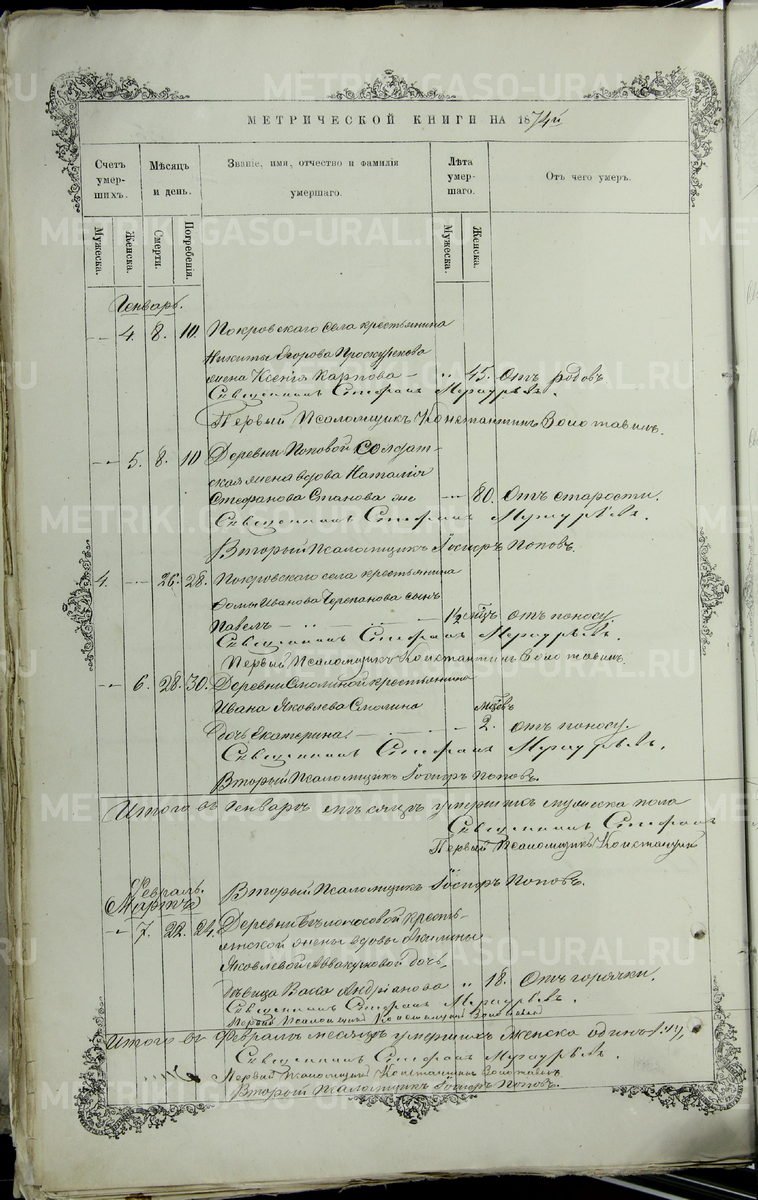 МЕТРИЧЕСКОЙ КНИГИ НА 1874й
Счетъ умершихъ.
Мѣсяцъ и день.
Званіе, имя, отчество и фамилія умершаго.
Лѣта умершаго.
Отъ чего умеръ.
Мужеска.
Женска.
Смерти.
Погребенія.
Мужеска.
Женска.
Генварь.
4. 8. 10. Покровскаго села крестьянина
Никиты Егорова Проскурекова
жена Ксенія Карпова 45. Отъ родовъ
Священникъ Стефанъ
Первый Псаломщикъ Константинъ
5. 8. 10 Деревни Поповой Солдат-
ская жена вдова Наталія
Стефанова 80. Отъ старости.
Священникъ Стефанъ
Вторый Псаломщикъ Поповъ.
4. 26. 28. Покровскаго села крестьянина
Фомы Иванова Черепанова сынъ
Павелъ 1½ отъ поносу
Священникъ Стефанъ
Первый Псаломщикъ Константинъ
6. 28. 30. Деревни Смолиной крестьянина
Ивана Яковлева Смолина
дочь Екатерина 2. отъ поносу.
Священникъ Стефанъ
Вторый Псаломщикъ Поповъ.
Итого въ Генварѣ мѣсяцѣ умершихъ мужеска пола
Священникъ Стефанъ
Первый Псаломщикъ Константинъ
Вторый Псаломщикъ Поповъ.
Февраль.
Мартъ
7. 22. 24. Деревни Бѣлоносовой кресть-
янской жены вдовы Акилины
Яковлевой дочь,
дѣвица Васса Андріанова 18. Отъ горячки.
Священникъ Стефанъ
Первый Псаломщикъ Константинъ
Итого въ Февралѣ месяцѣ умершихъ женска одинъ /1/
Священникъ Стефанъ
Первый Псаломщикъ Константинъ
Вторый Псаломщикъ Поповъ.
METRIKI.GASO-URAL.RU